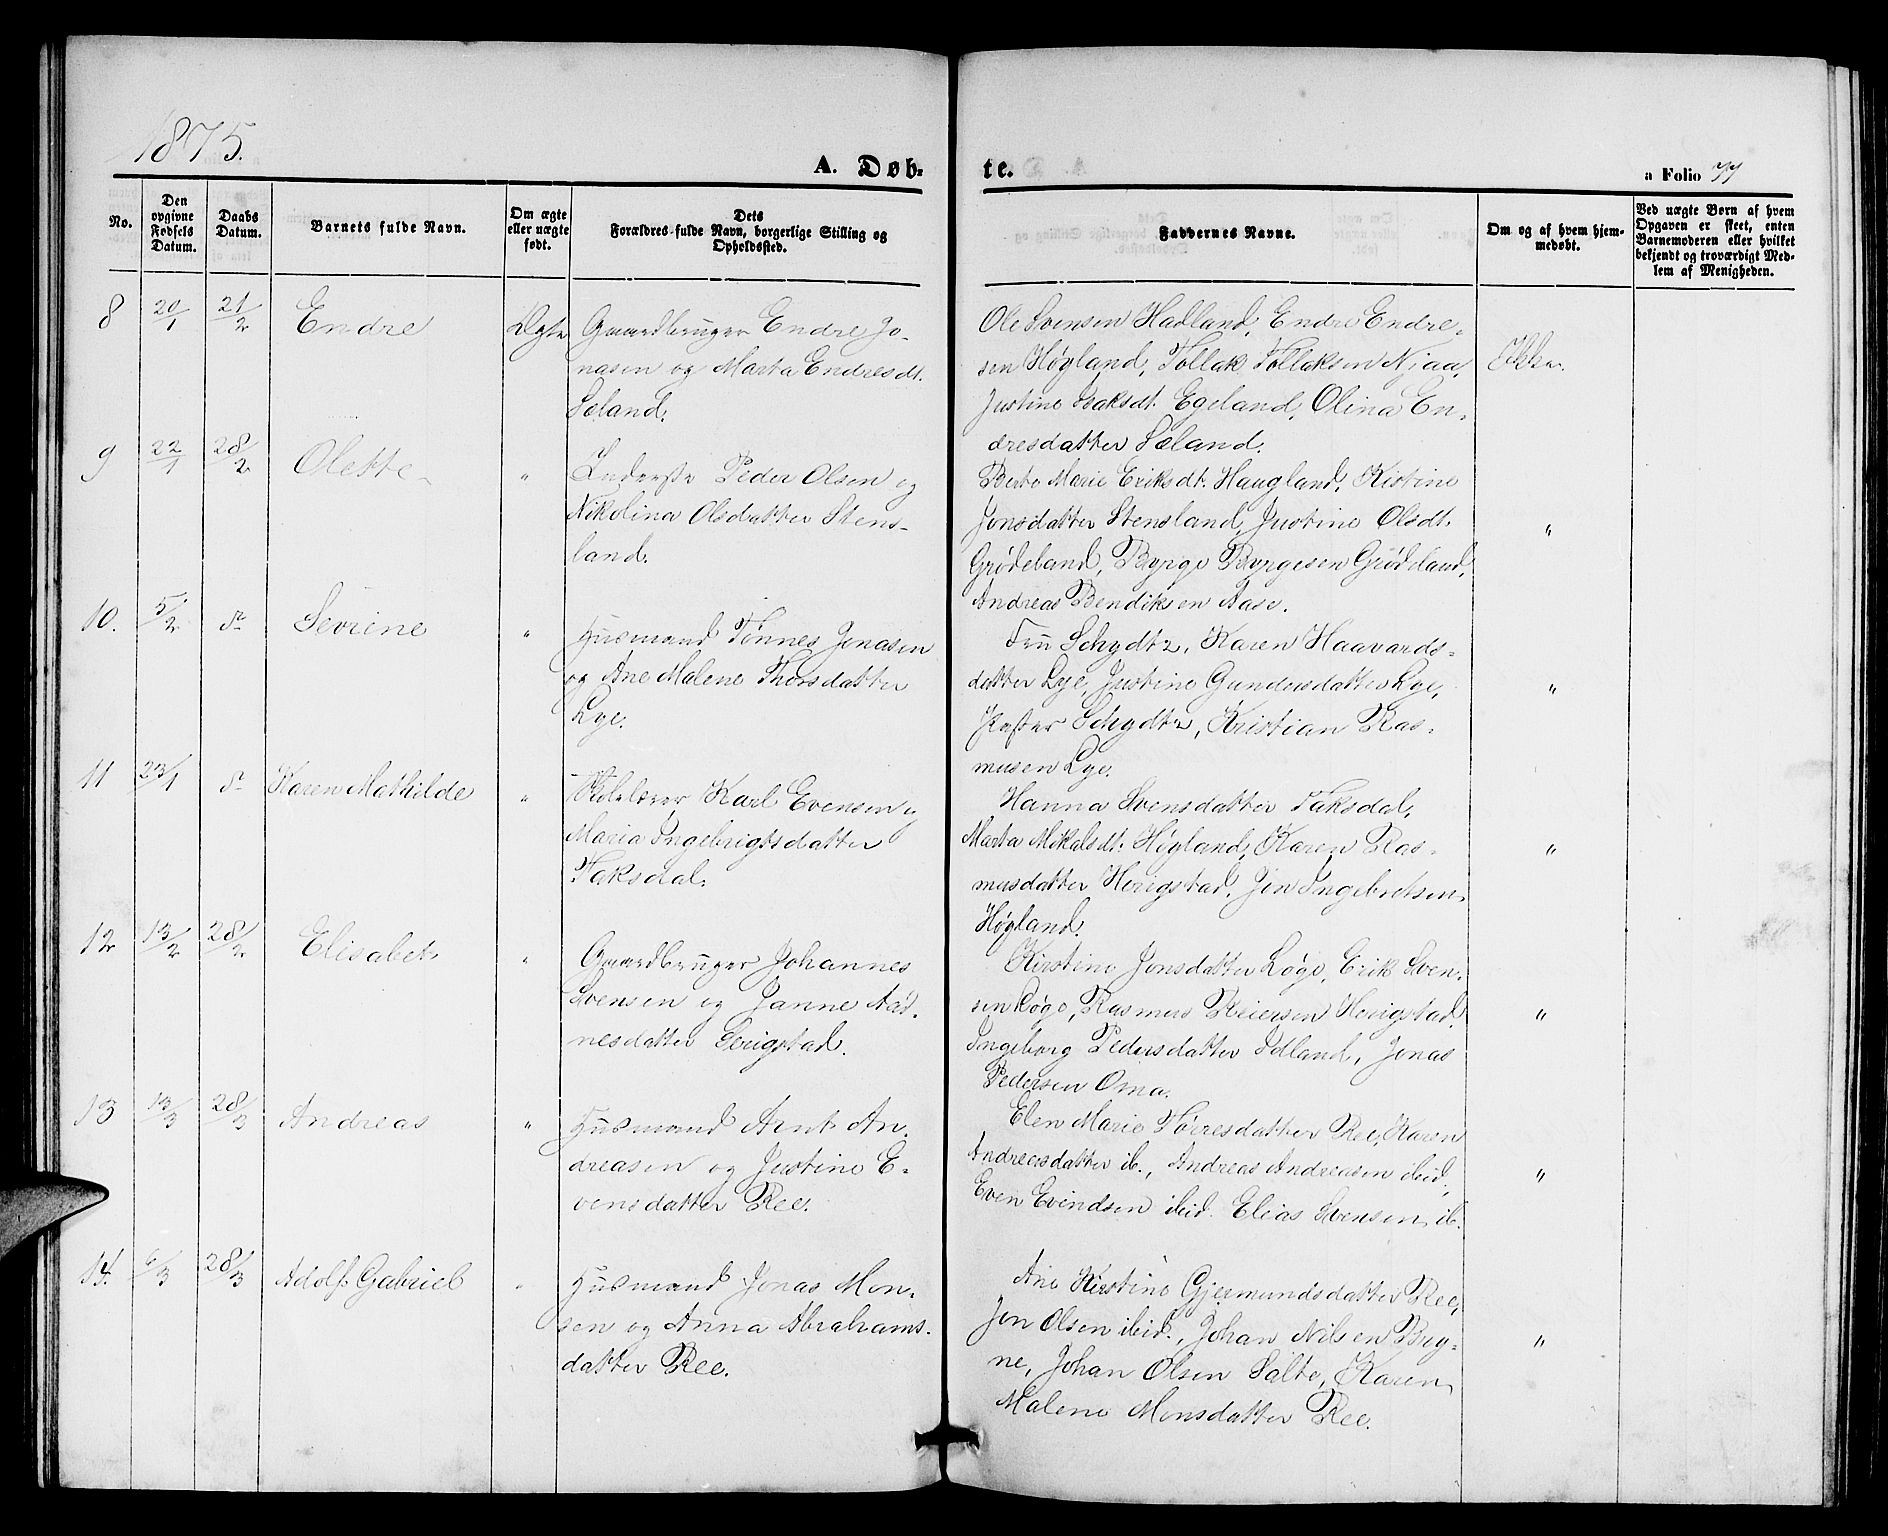 1875.
A. Døb-
te.
a Folio 77
No.
Den opgivne Fødsels Datum.
Daabs Datum.
Barnets fulde Navn.
Om ægte eller uægte født.
Dets Forældres fulde Navn, borgerlige Stilling og Opholdssted.
Faddernes Navne.
Om og af hvem hjemmedøbt.
Ved uægte Børn af hvem Opgaven er skeet, enten Barnemoderen eller hvilket bekjendt og troværdigt Medlem af Menigheden.
8 20/1 21/2 Endre Ægte
Gaardbruger Endre Jo-
nasen og Marta Endresdt.
Sæland.
Ole Svensen Hadland, Endre Endre-
sen Høgland, Tollak Tollaksen Njaa,
Justine Isaksdt. Egeland, Olina En-
dresdatter Sæland.
Ikke.
9 22/1 28/2 Olette "
Inderste Peder Olsen og
Nikolina Olsdatter Stens-
land.
Berte Marie Eriksdt. Haugland, Kistine
Jonsdatter Stensland, Justine Olsdt.
Grødeland, Byrge Byrgesen Grødeland,
Andreas Bendiksen Aase.
"
10. 5/2 do Sevrine "
Husmand Tönnes Jonasen
og Ane Malene Thorsdatter
Lye.
Fru Schydtz, Karen Haavards-
datter Lye, Justine Gundersdatter Lye,
Pastor Schydtz, Kristian Ras-
musen Lye.
"
11 23/1 do Karen Mathilde "
Skolelærer Karl Evensen og
Maria Ingebrigtsdatter
Taksdal.
Hanna Svensdatter Taksdal,
Marta Mikalsdt. Høgland, Karen Ras-
musdatter Herigstad, Jon Ingebretsen
Høgland.
"
12 13/2 28/2 Elisabet "
Gaardbruger Johannes
Svensen og Janne Aad-
nesdatter Serigstad.
Kirstine Jonsdatter Løge, Erik Sven-
sen Løge, Rasmus Reiersen Herigstad,
Ingeborg Pedersdatter Idland, Jonas
Pedersen Oma.
"
13 13/3 28/3 Andreas "
Husmand Arnt An-
dreasen og Justine E-
vensdatter Ree.
Elen Marie Tørresdatter Ree, Karen
Andreasdatter ib., Andreas Andreasen ibid.,
Even Evindsen ibid. Elias Svensen ib.
"
14. 6/3 28/3 Adolf Gabriel "
Husmand Jonas Mon-
sen og Anna Abrahams-
datter Ree.
Ane Kirstine Gjermundsdatter Ree,
Jon Olsen ibid., Johan Nilsen Bry-
ne, Johan Olsen Salte, Karen
Malene Monsdatter Ree.
"